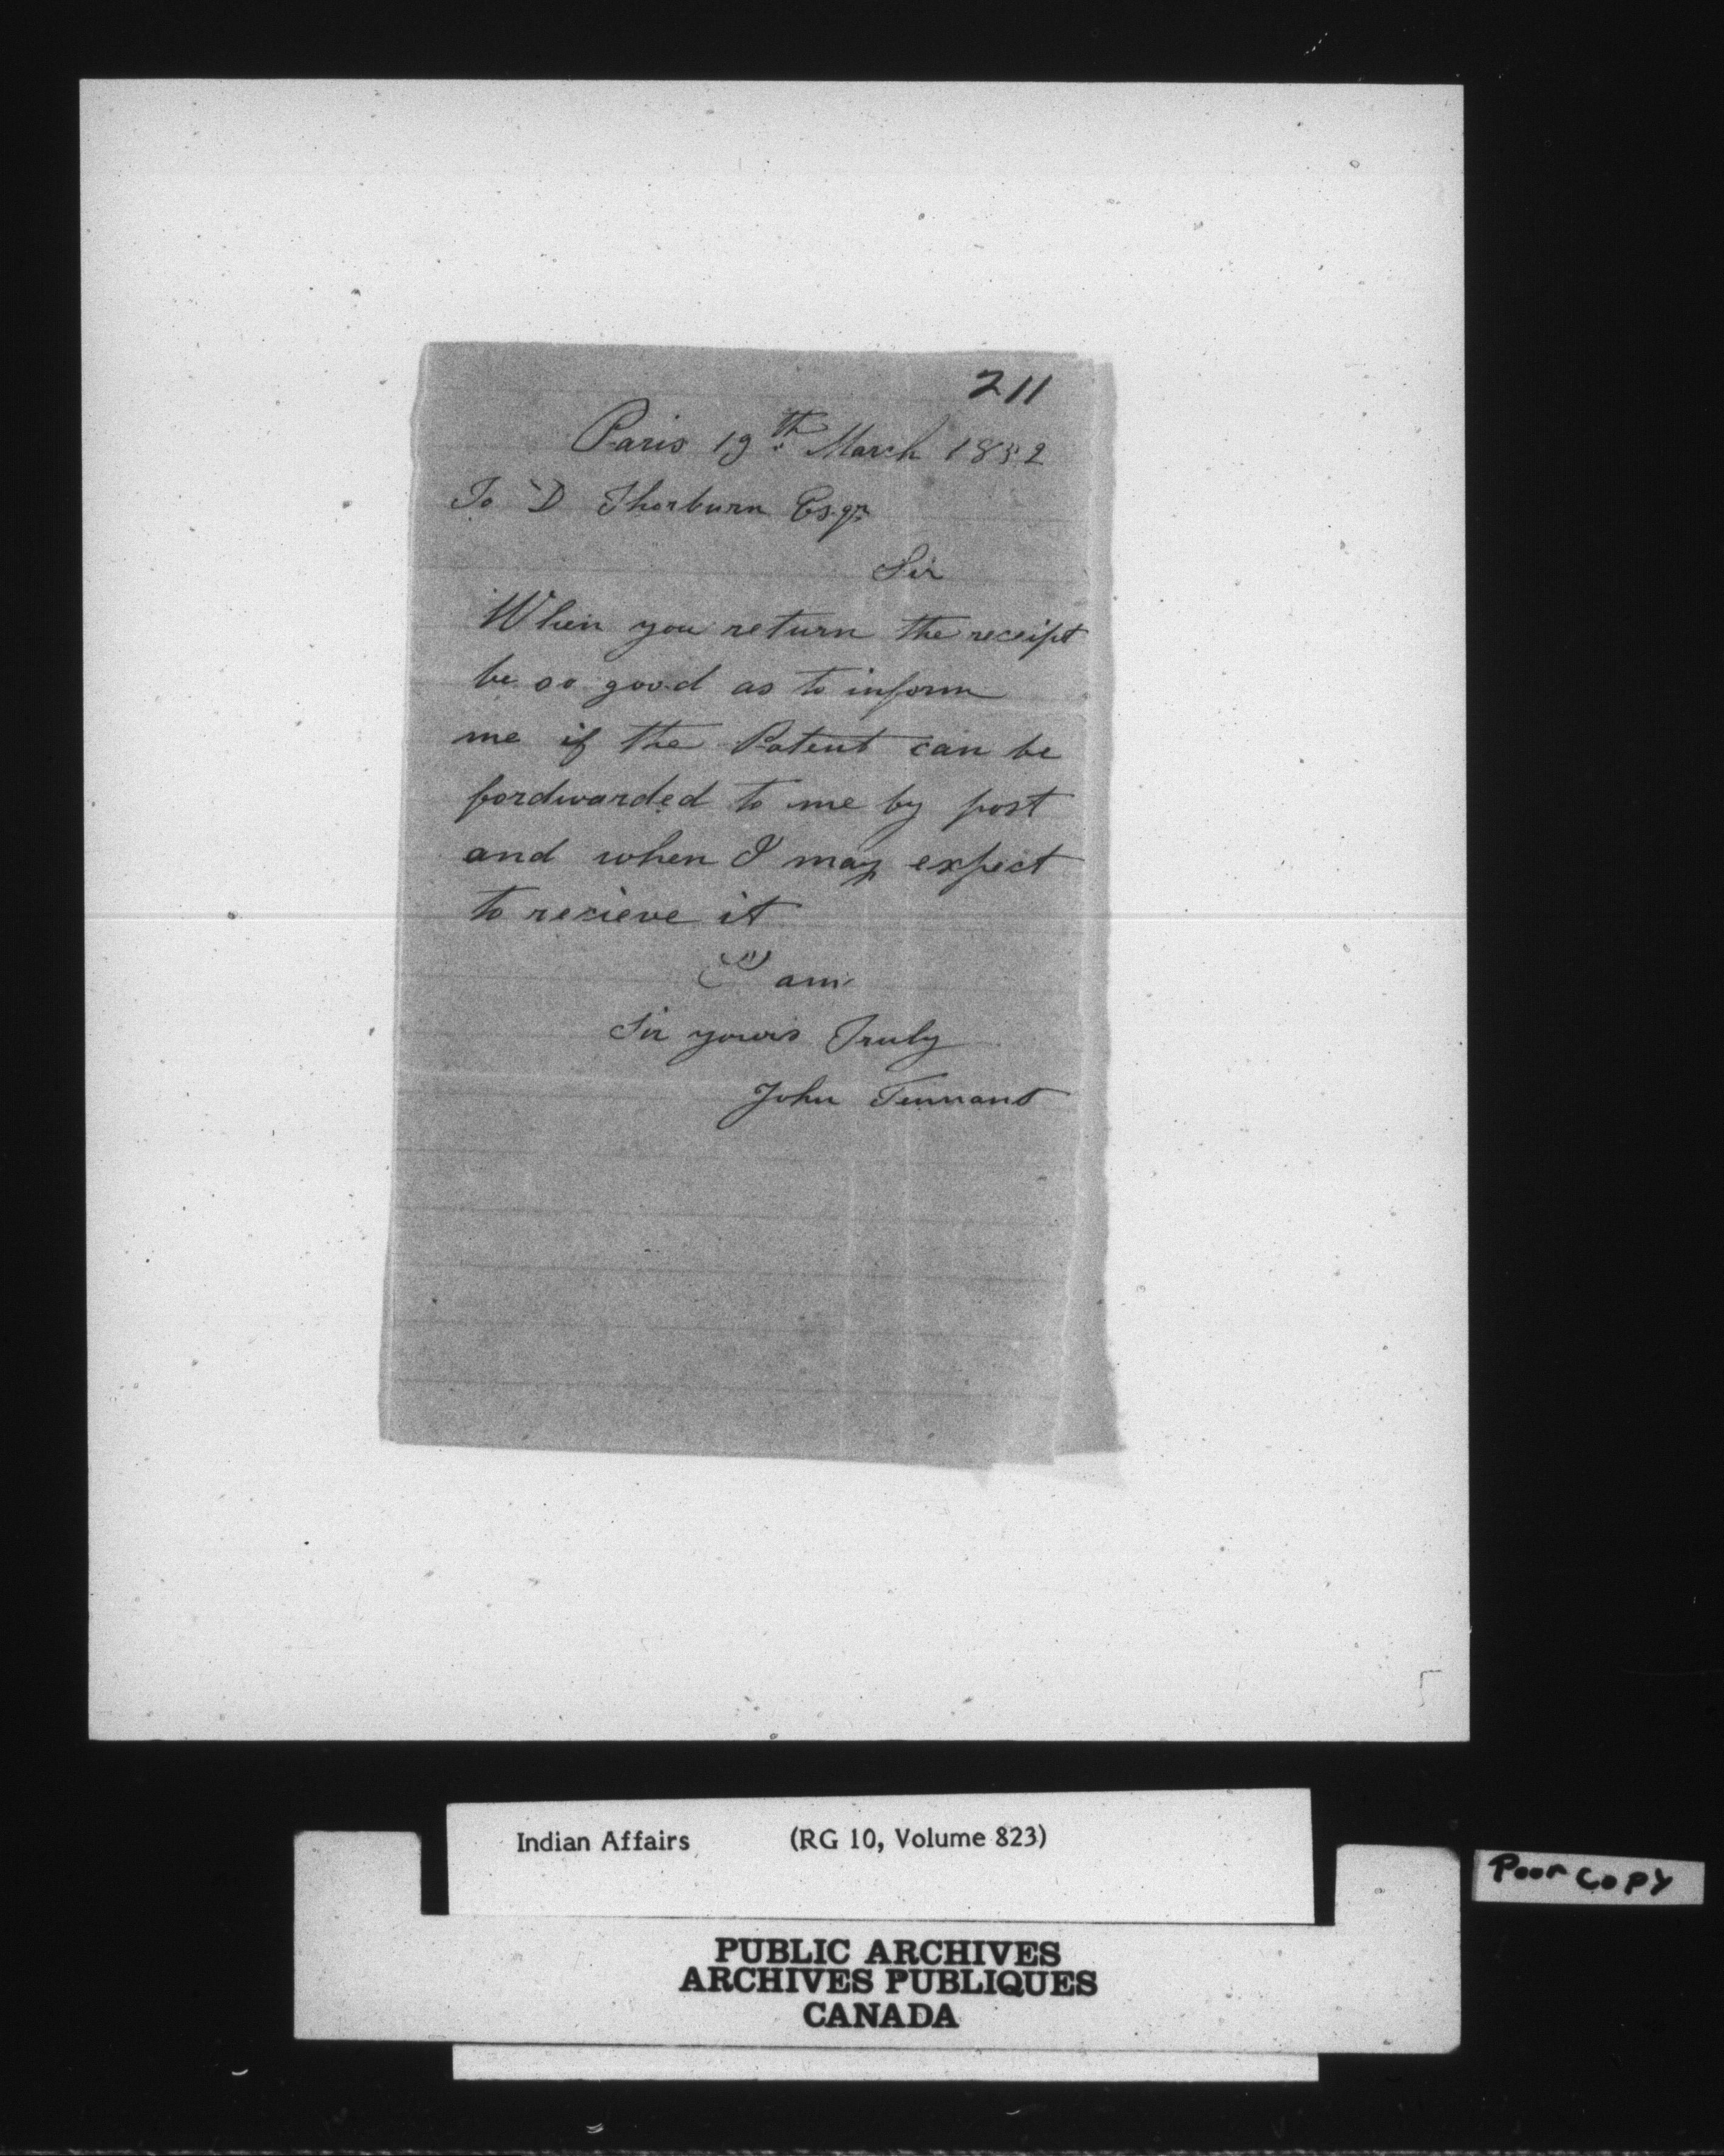 211
Paris 19th March 1852
To D Thorburn Esqr
Sir
When you return the receipt
be so good as to inform
me if the Patent can be
fordwarded to me by post
and when I may expect
to recieve it
I am
Sir yours Truly
John Tennant
Indian Affairs (RG 10, Volume 823)
Poor Copy
PUBLIC ARCHIVES
ARCHIVES PUBLIQUES
CANADA